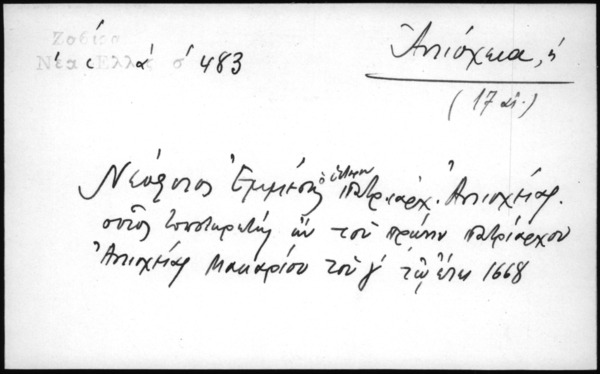 Ζαβίρα
Νέα Ἑλλὰς σ 483
Ἀντιόχεια, ἡ
(17 αἰ.)
Νεόφυτος Ἐμμέσης ὁ πατριάρχ. Ἀντιοχείας.
οὗτος ἐπιστατεύς ὢν τοῦ πρώην πατριάρχου
Ἀντιοχείας Μακαρίου τοῦ γ' τῷ ἔτει 1668